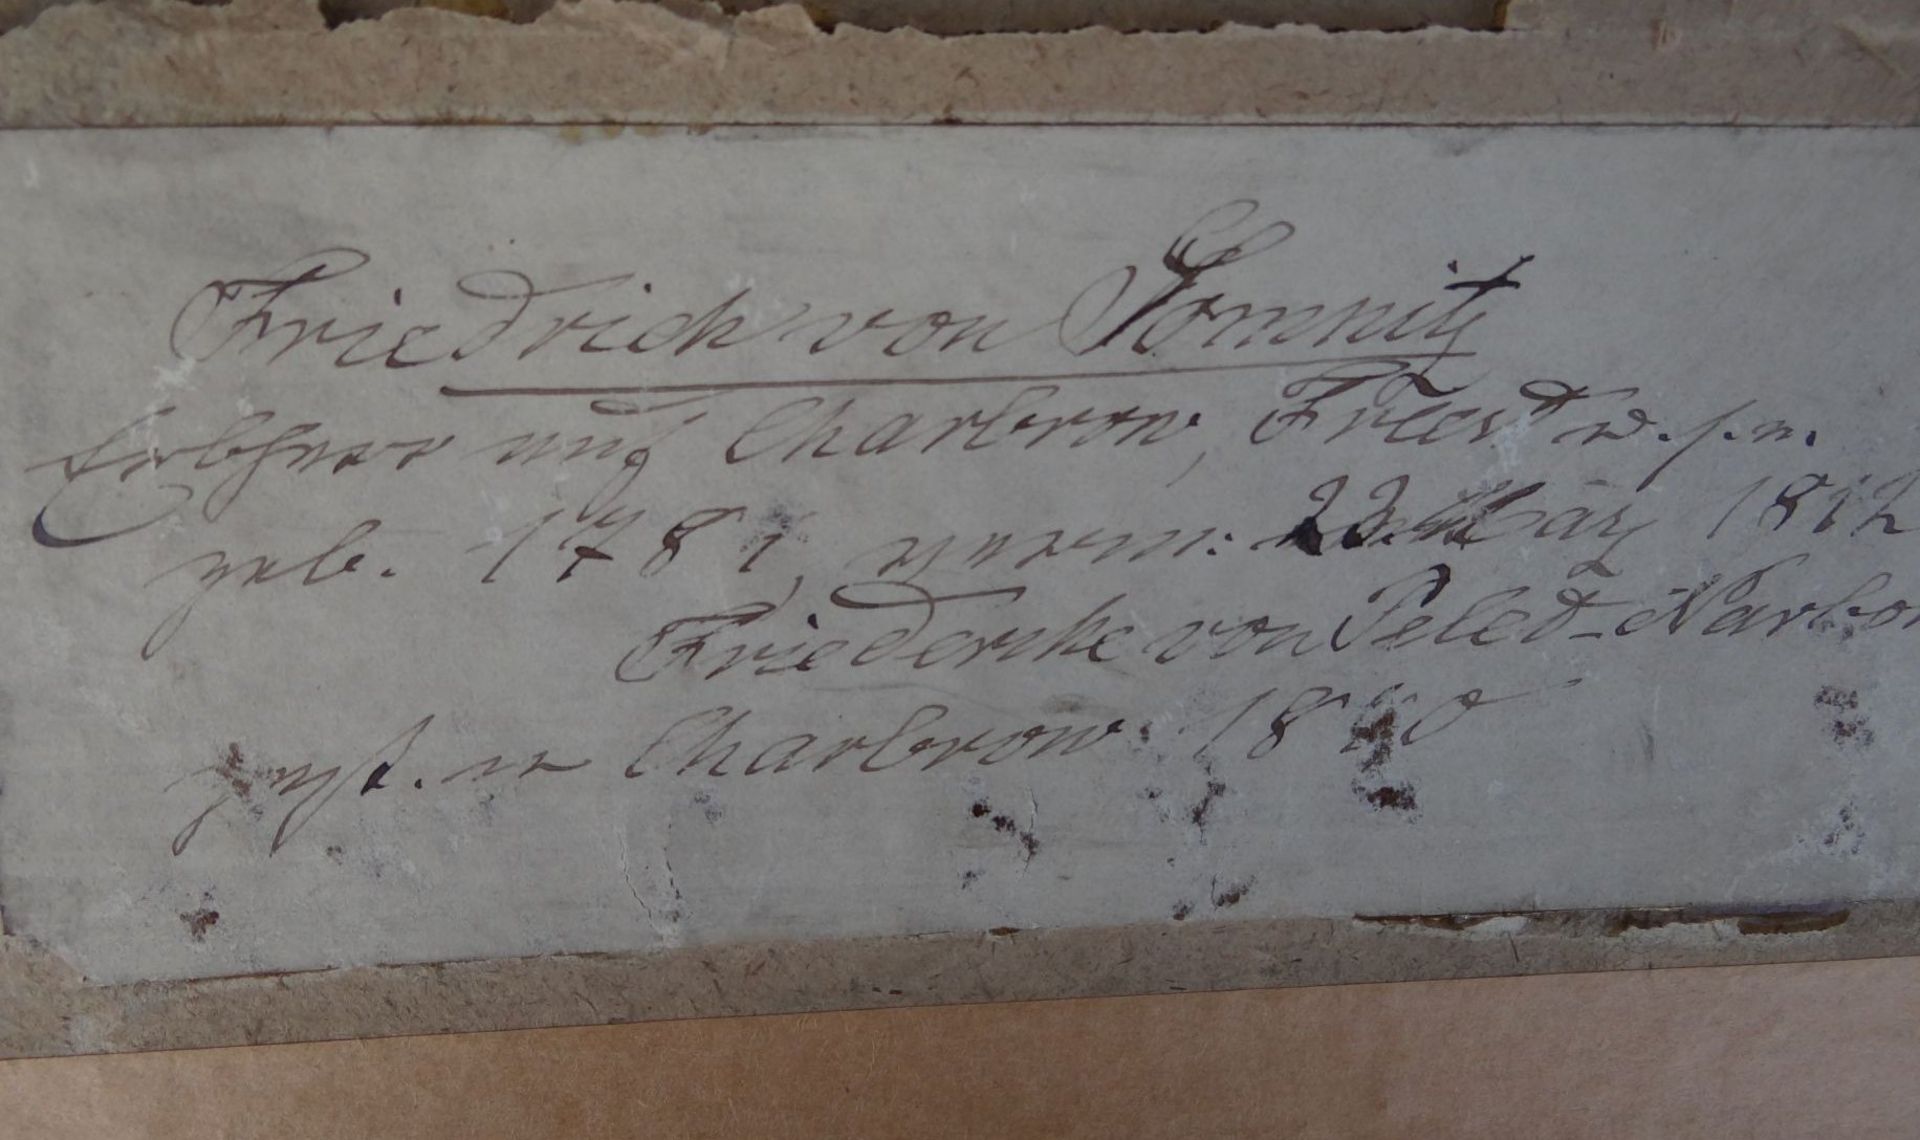 Friedrich von Somnitz
Erbherr auf Charbrow, Freest u. s. w.
geb. 1781, verm: 23. März 1812
Friedericke von Peled-Narbon
gest. in Charbrow 1840